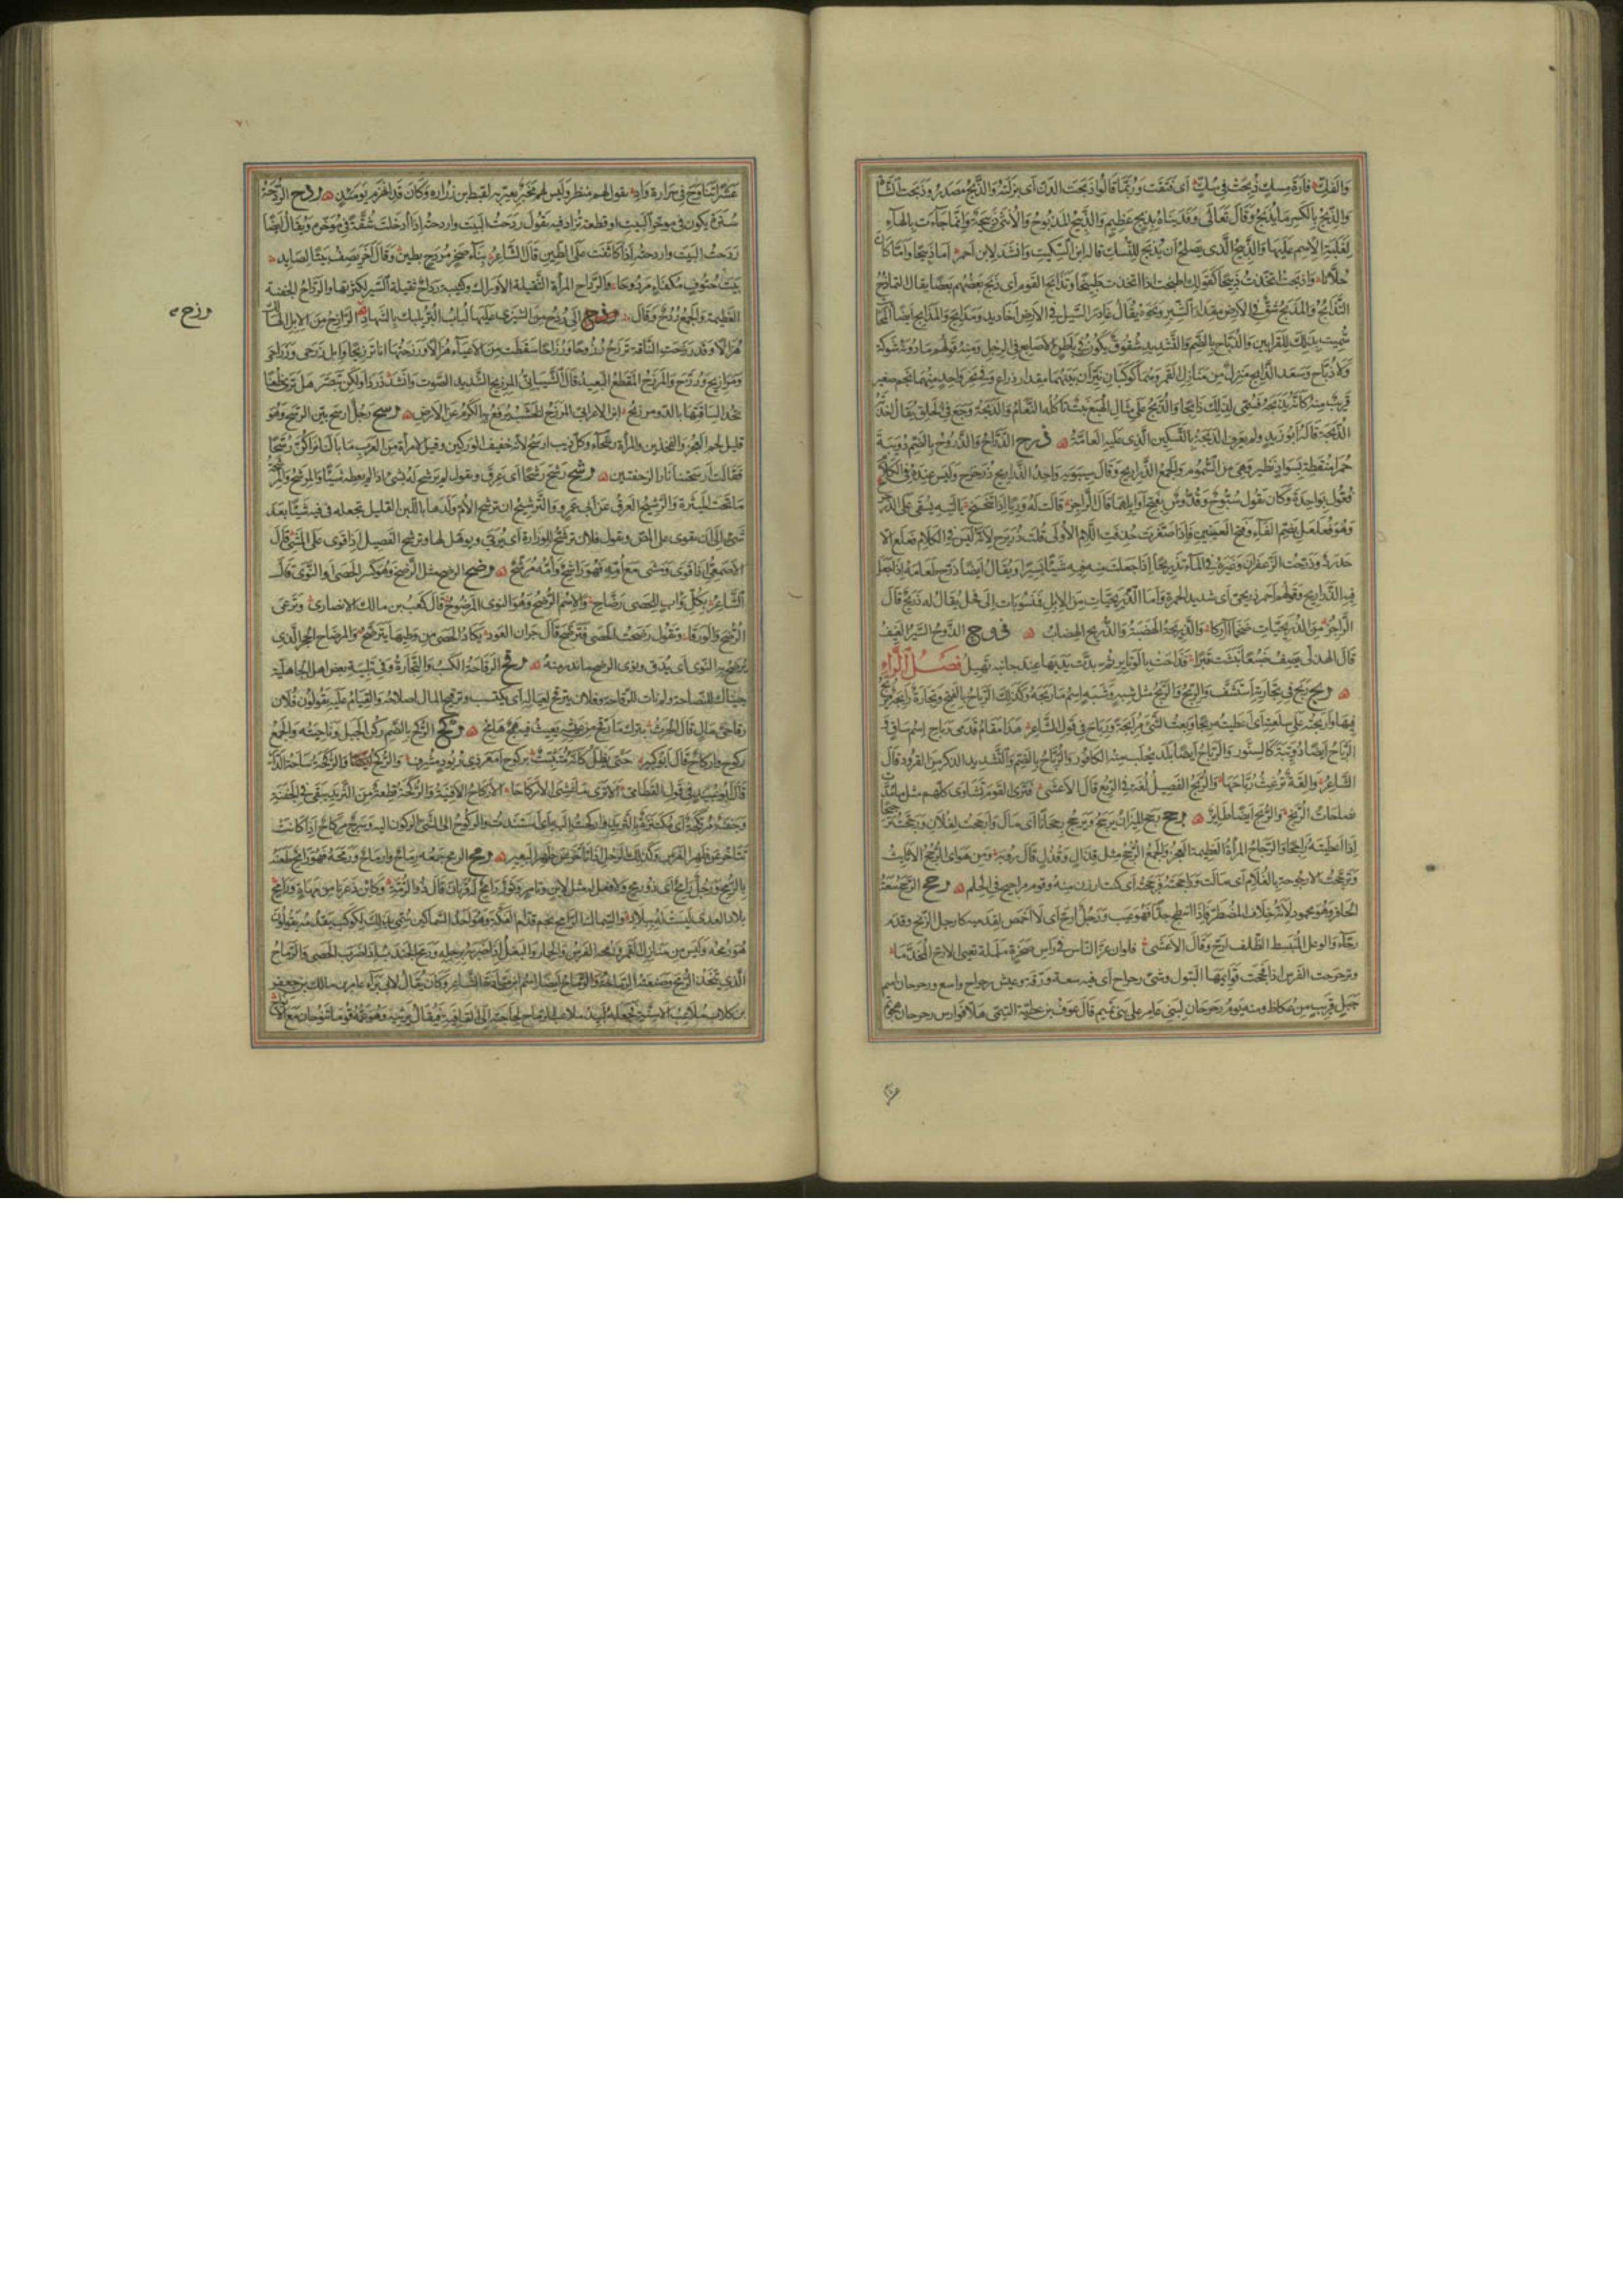 والفك فارة مسك ذبحت في سك اى فتقت وربما قالوا ذبحت الدن اى بزلته والذبح مصدر وذبحت الشاة
والذبح بالكسر ما يذبح وقال تعالى وفديناه بذبح عظيم والذبيح المذبوح والانثى ذبيحة وانما جاءت بالهاء
لغلبة الاسم عليها والذبيح الذى يصلح ان يذبح للنسك قال ابن السكيت وانشد لابن احمر اما ذبيحا واما كان
حلانا واذبحت اتخذت ذبيحا كقولك اطبخت اذا اتخذت طبيخا وتذابح القوم اى ذبح بعضهم بعضا يقال التمادح
التذابح والمذبح شق في الارض مقدار الشبر ونحوه يقال غادر السيل في الارض اخاديد ومذابح والمذابح ايضا المحاريب
سميت بذلك للقرابين والذباح بالضم والتشديد شقوق تكون في باطن الاصابع في الرجل ومنه قولهم ما دونه شوكة
ولا ذباح وسعد الذابح منزل من منازل القمر وهما كوكبان نيران بينهما مقدار ذراع وفي نحر واحد منهما نجم صغير
قريب منه كانه يذبحه فسمى لذلك ذابحا والذبح على مثال الهبع نبت تاكله النعام والذبحة وجع في الحلق يقال اخذته
الذبحة قاله ابو زيد ولم يعرف الذبحة بالتسكين الذى عليه العامة ذرح الذراح والذروح بالضم دويبة
حمراء منقطة بسواد تطير وهى من السموم والجمع الذراريح وقال سيبويه واحد الذراريح ذرحرح وليس عنده في الكلام
فعول بواحدة وكان يقول سبوح وقدوس بفتح اوايلهما قال الراجز قالت له وريا اذا تنحنح يا ليته يسقى على الذرحرح
وهو فعلعل بضم الفاء وفتح العينين فاذا صغرت حذفت اللام الاولى قلت ذريرح لانه ليس في الكلام فعلع الا
حدرد وذرحت الزعفران وغيره في الماء تذريحا اذا جعلت منه فيه شيئا يسيرا ويقال ايضا ذرح طعامه اذا جعل
فيه الذراريح وقولهم احمر ذريحى اى شديد الحمرة واما الذريحيات من الابل فمنسوبات الى فحل يقال له ذريح قال
الراجز من الذريحيات ضخما آركا والذريحة الهضبة والذريح الهضاب ذوح الذوح السير العنيف
قال الهذلى يصف ضبعا نبشت قبرا فذاحت بالوتاير ثم بدت يديها عند جانبه تهيل فصل الراء
ربح ربح في تجارته استشف والربح والربح مثل شبه وشبه اسم ما ربحه وكذلك الرباح بالفتح وتجارة رابحة يربح
فيها واربحته على سلعته اى اعطيته ربحا وبعت الشئ مرابحة ورباح في قول الشاعر هذا مقام قدمى رباح اسم ساق
الرباح ايضا دويبة كالسنور والرباح ايضا بلد يجلب منه الكافور والرباح بالضم والتشديد الذكر من القرود قال
الشاعر والقة ترغث رباحها والربح الفصيل لغة في الربع قال الاعشى فترى القوم نشاوى كلهم مثل ما مدت
نصاحات الربح والربح ايضا طاير رجح رجح الميزان يرجح ويرجح رجحانا اى مال وارجحت لفلان ورجحت ترجيحا
اذا اعطيته راجحا والرجاح المرأة العظيمة العجز والجمع الرجح مثل قذال وقذل قال رؤبة ومن هواى الرجح الاثايث
وترجحت الارجوحة بالغلام اى مالت وراجحته فرجحته اى كنت ارزن منه وقوم مراجيح في الحلم رحح الرحح سعة
الحافر وهو محمود لانه خلاف المصطر فاذا انبطح جدا فهو عيب ورجل ارح اى لا اخمص لقدميه كارجل الزنج وقدم
رحاء والوعل المنبسط الظلف ارح وقال الاعشى فلوان عز الناس في راس صخرة ململمة تعيى الارح المخدما
وترحرحت الفرس اذا فحجت قوايمها لتبول وشئ رحراح اى فيه سعة ورقة وعيش رحراح واسع ورحرحان اسم
جبل قريب من عكاظ ومنه يوم رحرحان لبنى عامر على بنى تميم قال عوف بن عطية التيمى هلا فوارس رحرحان هجوتم
عشرا تناوح في حرارة واد يقول لهم منظر وليس لهم مخبر يعير به لقيط بن زرارة وكان قد انهزم يومئذ ردح الردحة
سترة تكون في موخر البيت او قطعة تزاد فيه يقول ردحت البيت واردحته اذا ادخلت شقة في موخره ويقال ايضا
ردحت البيت واردحته اذا كاثفت عليه الطين قال الشاعر بناء صخر مردح بطين وقال آخر يصف بيتا لصايد
بيت حتوف مكفاء مردوحا والرداح المرأة الثقيلة الاوراك وكتيبة رداح ثقيلة السير لكثرتها والرداح الجفنة
العظيمة والجمع ردح وقال الى ردح من الشيزى عليها لباب البر يلبك بالشهاد رزح الرازح من الابل الهالك
هزالا وقد رزحت الناقة ترزح رزوحا ورزاحا سقطت من الاعياء هزالا ورزحتها انا ترزيحا وابل رزحى ورزاحى
ومرازيح ورزح والمرزح المقطع البعيد قال الشيبانى المرزيح الشديد الصوت وانشد ذر ذا ولكن تبصر هل ترى ظعنا
تحدى لساقتها بالدو مرزيح ابن الاعرابى المرزح الخشب يرفع به الكرم عن الارض رسح رجل ارسح بين الرسح وهو
قليل لحم العجز والفخذين والمرأة رسحاء وكل ذيب ارسح لانه خفيف الوركين وقيل لامراة من العرب ما بالنا نراكن رسحا
فقالت ارسحتنا نار الزحفتين رشح رشح رشحا اى عرق وتقول لم يرشح له بشئ اذا لم يعطه شيئا والمرشح والمرشحة
ما تحت الميثرة والرشيح العرق عن ابى عمرو والترشيح ان ترشح الام ولدها باللبن القليل تجعله في فيه شيئا بعد
شئ الى ان يقوى على المص وتقول فلان يرشح للوزارة اى يربى ويوهل لها وترشح الفصيل اذا قوى على المشى قال
الاصمعى اذا قوى ومشى مع امه فهو راشح وامه مرشح رضح الرضح مثل الرضخ وهو كسر الحصى او النوى قال
الشاعر بكل وأب للحصى رضاح والاسم الرضح وهو النوى المرضوح قال كعب بن مالك الانصارى وترعى
الرضح والورقا وتقول رضحت الحصى فترضح قال جران العود يكاد الحصى من وطيها يترضح والمرضاح الحجر الذى
يرضح به النوى اى يدق ونوى الرضح ما ندر منه رقح الرقاحة الكسب والتجارة وفي تلبية بعض اهل الجاهلية
جيناك للنصاحة ولم نات للرقاحة وفلان يترقح لعياله اى يكتسب وترقيح المال اصلاحه والقيام عليه يقولون فلان
رقاحى مال قال الحرث يترك ما رقح من عيشه يعيث فيه همج هامج ركح الركح بالضم ركن الجبل وناحيته والجمع
ركوح واركاح قال ابو كبير حتى يظل كانه متثبت بركوح امعز ذى ريود مشرف والركح ايضا والركحة ساحة الدار
قال ابو عبيد في قول القطامى الا ترى ما غشى الاركاحا الاركاح الافنية والركحة قطعة من الثريد تبقى في الجفنة
وجفنة مرتكحة اى مكتنزة بالثريد واركحت اليه اى استندت والركوح الى الشئ الركون اليه وسرج مركاح اذا كانت
تتاخر عن ظهر الفرس وكذلك الرحل اذا تاخر عن ظهر البعير رمح الرمح جمعه رماح وارماح ورمحه فهو رامح طعنه
بالرمح ورجل رامح اى ذو رمح ولا فعل له مثل لابن وتامر وثور رامح له قرنان قال ذو الرمة وكائن ذعرنا من مهاة ورامح
بلاد العدى ليست له ببلاد والسماك الرامح نجم قدام الفكة وهو احد السماكين سمى بذلك لكوكب يقدمه يقولون
هو رمحه وليس من منازل القمر ورمحه الفرس والحمار والبغل اذا ضربه برجله ورمح الجندب اذا ضرب الحصى والرماح
الذى يتخذ الرمح وصنعته الرماحة والرماح ايضا اسم ابن ميادة الشاعر وكان يقال لابى براء عامر بن مالك بن جعفر
بن كلاب ملاعب الاسنة فجعله لبيد ملاعب الرماح لحاجته الى القافية فقال يرثيه وهو عمه قوما تنوحان مع الانواح
رزح